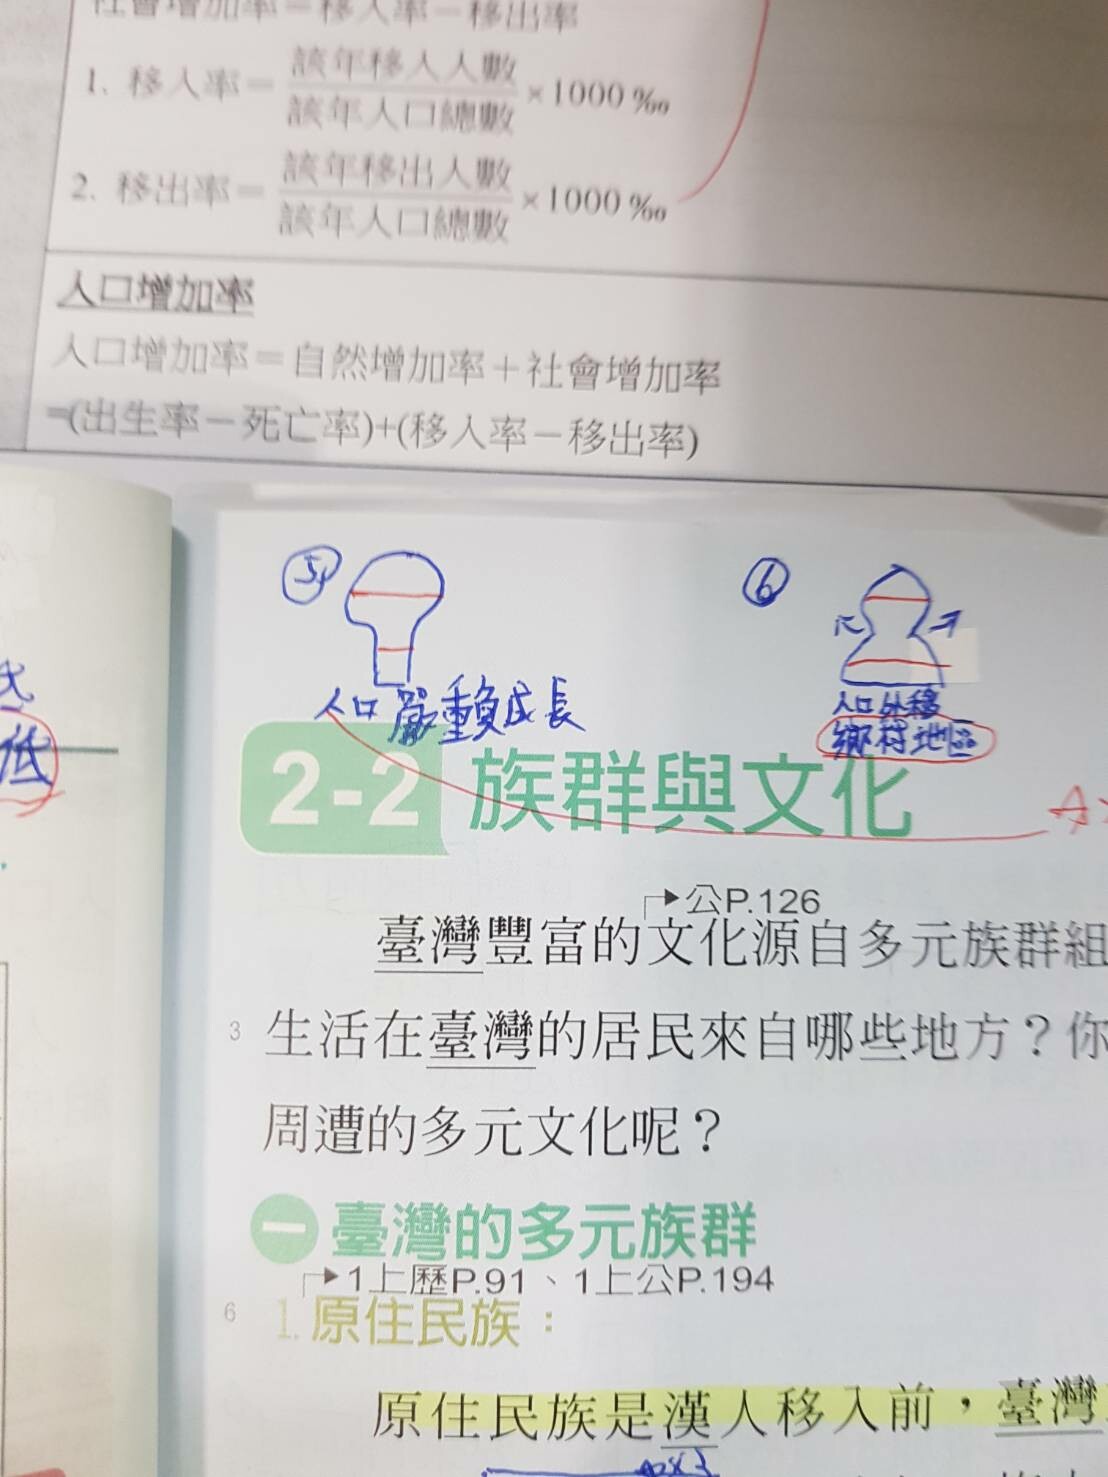 社會增加率＝移入率－移出率
1. 移入率＝該年移入人數/該年人口總數×1000‰
2. 移出率＝該年移出人數/該年人口總數×1000‰
人口增加率
人口增加率＝自然增加率＋社會增加率
=(出生率－死亡率)+(移入率－移出率)
⑤
⑥
人口嚴重負成長
人口外移
鄉村地區
低
2-2 族群與文化
公P.126
臺灣豐富的文化源自多元族群組
3 生活在臺灣的居民來自哪些地方？你
周遭的多元文化呢？
一 臺灣的多元族群
1上歷P.91、1上公P.194
6 1.原住民族：
原住民族是漢人移入前，臺灣